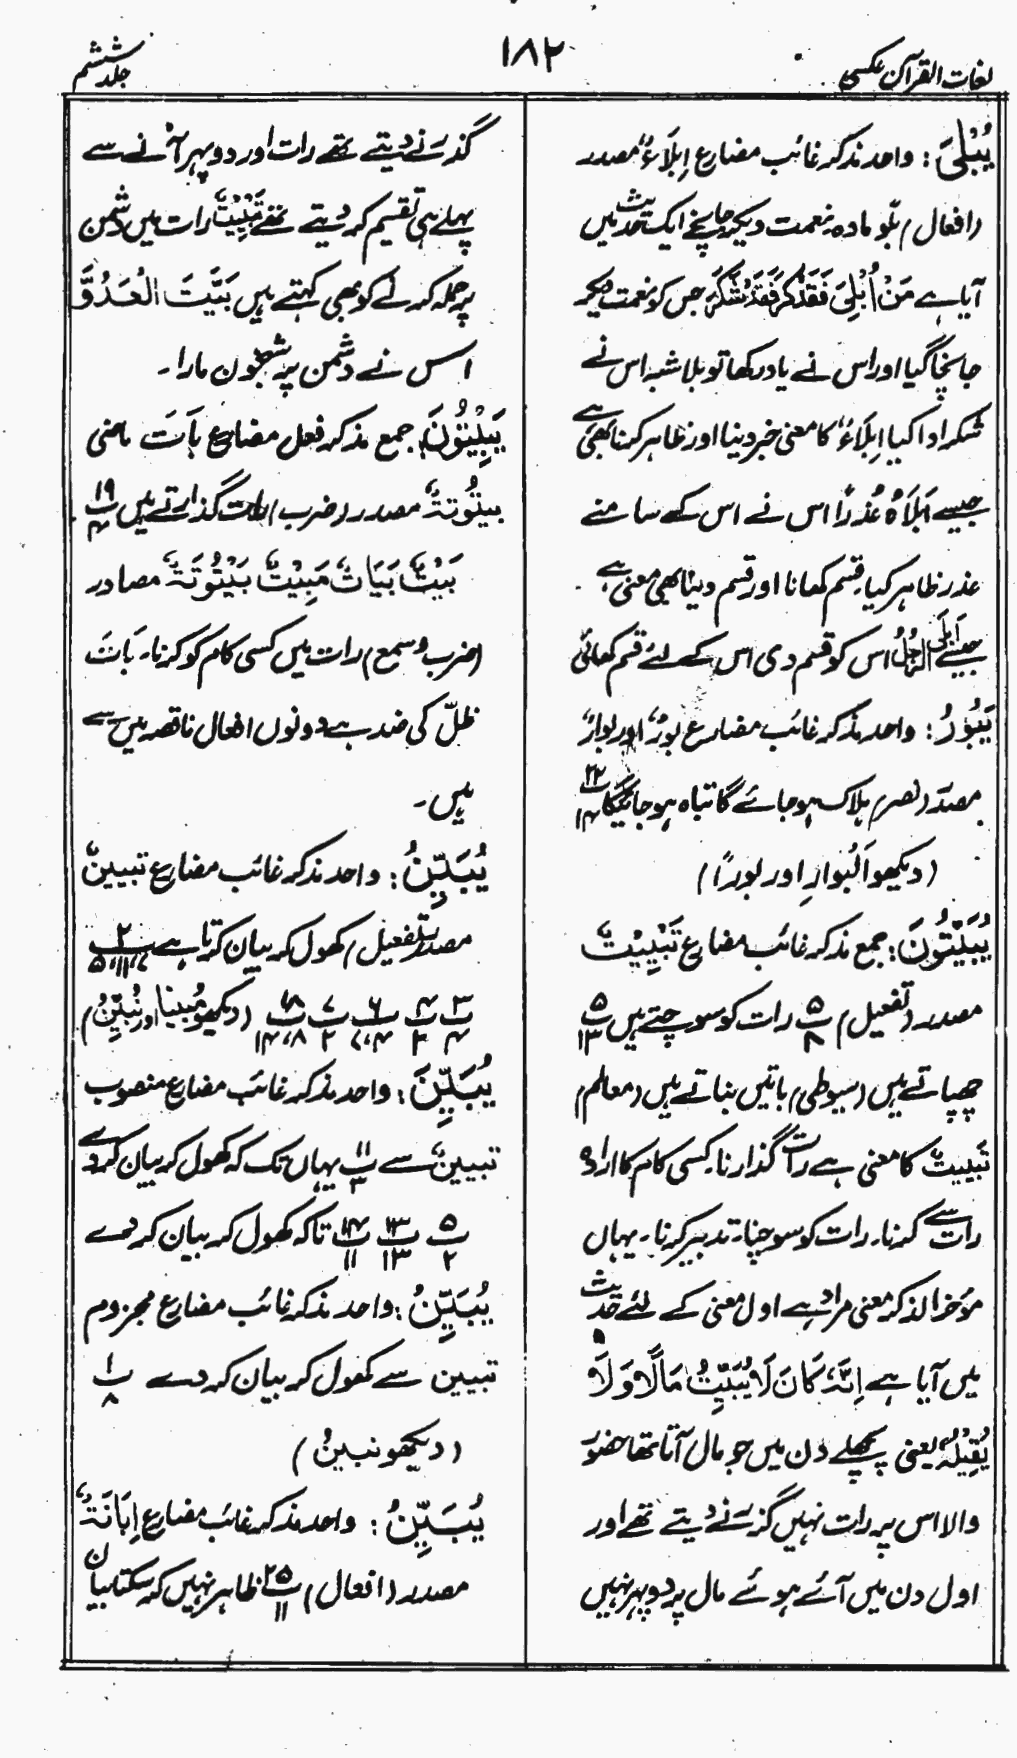 لغات القرآن عکسی
۱۸۲
جلد ششم
یُبْلِیَ : واحد مذکر غائب مضارع اِبْلَاءٌ مصدر
(افعال) بَلْو مادہ، نعمت دیکر جانچے ایک حدیث میں
آیا ہے مَنْ اُبْلِیَ فَذَکَرَ فَقَدْ شَکَرَ جس کو نعمت دیکر
جانچا گیا اور اس نے یاد رکھا تو بلا شبہ اس نے
شکر ادا کیا اِبْلَاءٌ کا معنی خبر دینا اور ظاہر کرنا بھی ہے
جیسے اَبْلَاہُ عُذْرًا اس نے اس کے سامنے
عذر ظاہر کیا۔ قسم کھانا اور قسم دینا بھی معنی ہے
جیسے اَبْلَی الرَّجُلَ اس کو قسم دی اس کے لئے قسم کھائی
یَبُوْرُ : واحد مذکر غائب مضارع بورٌ اور بوارٌ
مصدر (نصر) ہلاک ہو جائے گا تباہ ہو جائیگا ۲۲/۱۴
(دیکھو اَلْبَوارِ اور بورًا)
یُبَیِّتُوْنَ : جمع مذکر غائب مضارع تَبْیِیْتٌ
مصدر (تفعیل) ۵/۸ رات کو سوچتے ہیں ۵/۱۳
چھپاتے ہیں (سیوطی) باتیں بناتے ہیں (معالم)
تَبییتٌ کا معنی ہے رات گذارنا۔ کسی کام کا ارادہ
رات سے کرنا۔ رات کو سوچنا۔ تدبیر کرنا۔ یہاں
مؤخر الذکر معنی مراد ہے اول معنی کے لئے حدیث
میں آیا ہے اِنَّہٗ کَانَ لَا یُبَیِّتُ مَالًا وَلَا
یُقِیْلُہٗ یعنی پچھلے دن میں جو مال آتا تھا حضور
والا اس پر رات نہیں گزرنے دیتے تھے اور
اول دن میں آئے ہوئے مال پر دوپہر نہیں
گذرنے دیتے تھے رات اور دوپہر آنے سے
پہلے ہی تقسیم کر دیتے تھے تَبْیِیْتٌ رات میں دشمن
پر حملہ کرنے کو بھی کہتے ہیں بَیَّتَ الْعَدُوَّ
اس نے دشمن پر شبخون مارا۔
یَبِیْتُوْنَ : جمع مذکر فعل مضارع بَاتَ ماضی
بیتُوتۃٌ مصدر (ضرب) رات گذارتے ہیں ۱۹/۴
بَیْتٌ بَیَاتٌ مَبِیْتٌ بَیْتُوْتَۃٌ مصادر
(ضرب و سمع) رات میں کسی کام کو کرنا۔ بَاتَ
ظَلّ کی ضد ہے دونوں افعال ناقصہ میں سے
ہیں۔
یُبَیِّنُ : واحد مذکر غائب مضارع تبیینٌ
مصدر (تفعیل) کھول کر بیان کرتا ہے ۲/۵،۱۱،۷
۳/۴ ۴/۳ ۶/۷،۴ ۷/۲ ۱۸/۱۴،۸ (دیکھو مُبینا اور نُبَیِّنُ)
یُبَیِّنَ : واحد مذکر غائب مضارع منصوب
تبیینٌ سے ۱۱/۳ یہاں تک کہ کھول کر بیان کر دے
۵/۲ ۱۳/۱۳ ۱۴/۱۱ تاکہ کھول کر بیان کر دے
یُبَیِّنُ : واحد مذکر غائب مضارع مجزوم
تبیین سے کھول کر بیان کر دے ۱/۸
(دیکھو نبینُ)
یُبَیِّنُ : واحد مذکر غائب مضارع اِبَانَۃٌ
مصدر (افعال) ۲۵/۱۱ ظاہر نہیں کر سکتا بیان